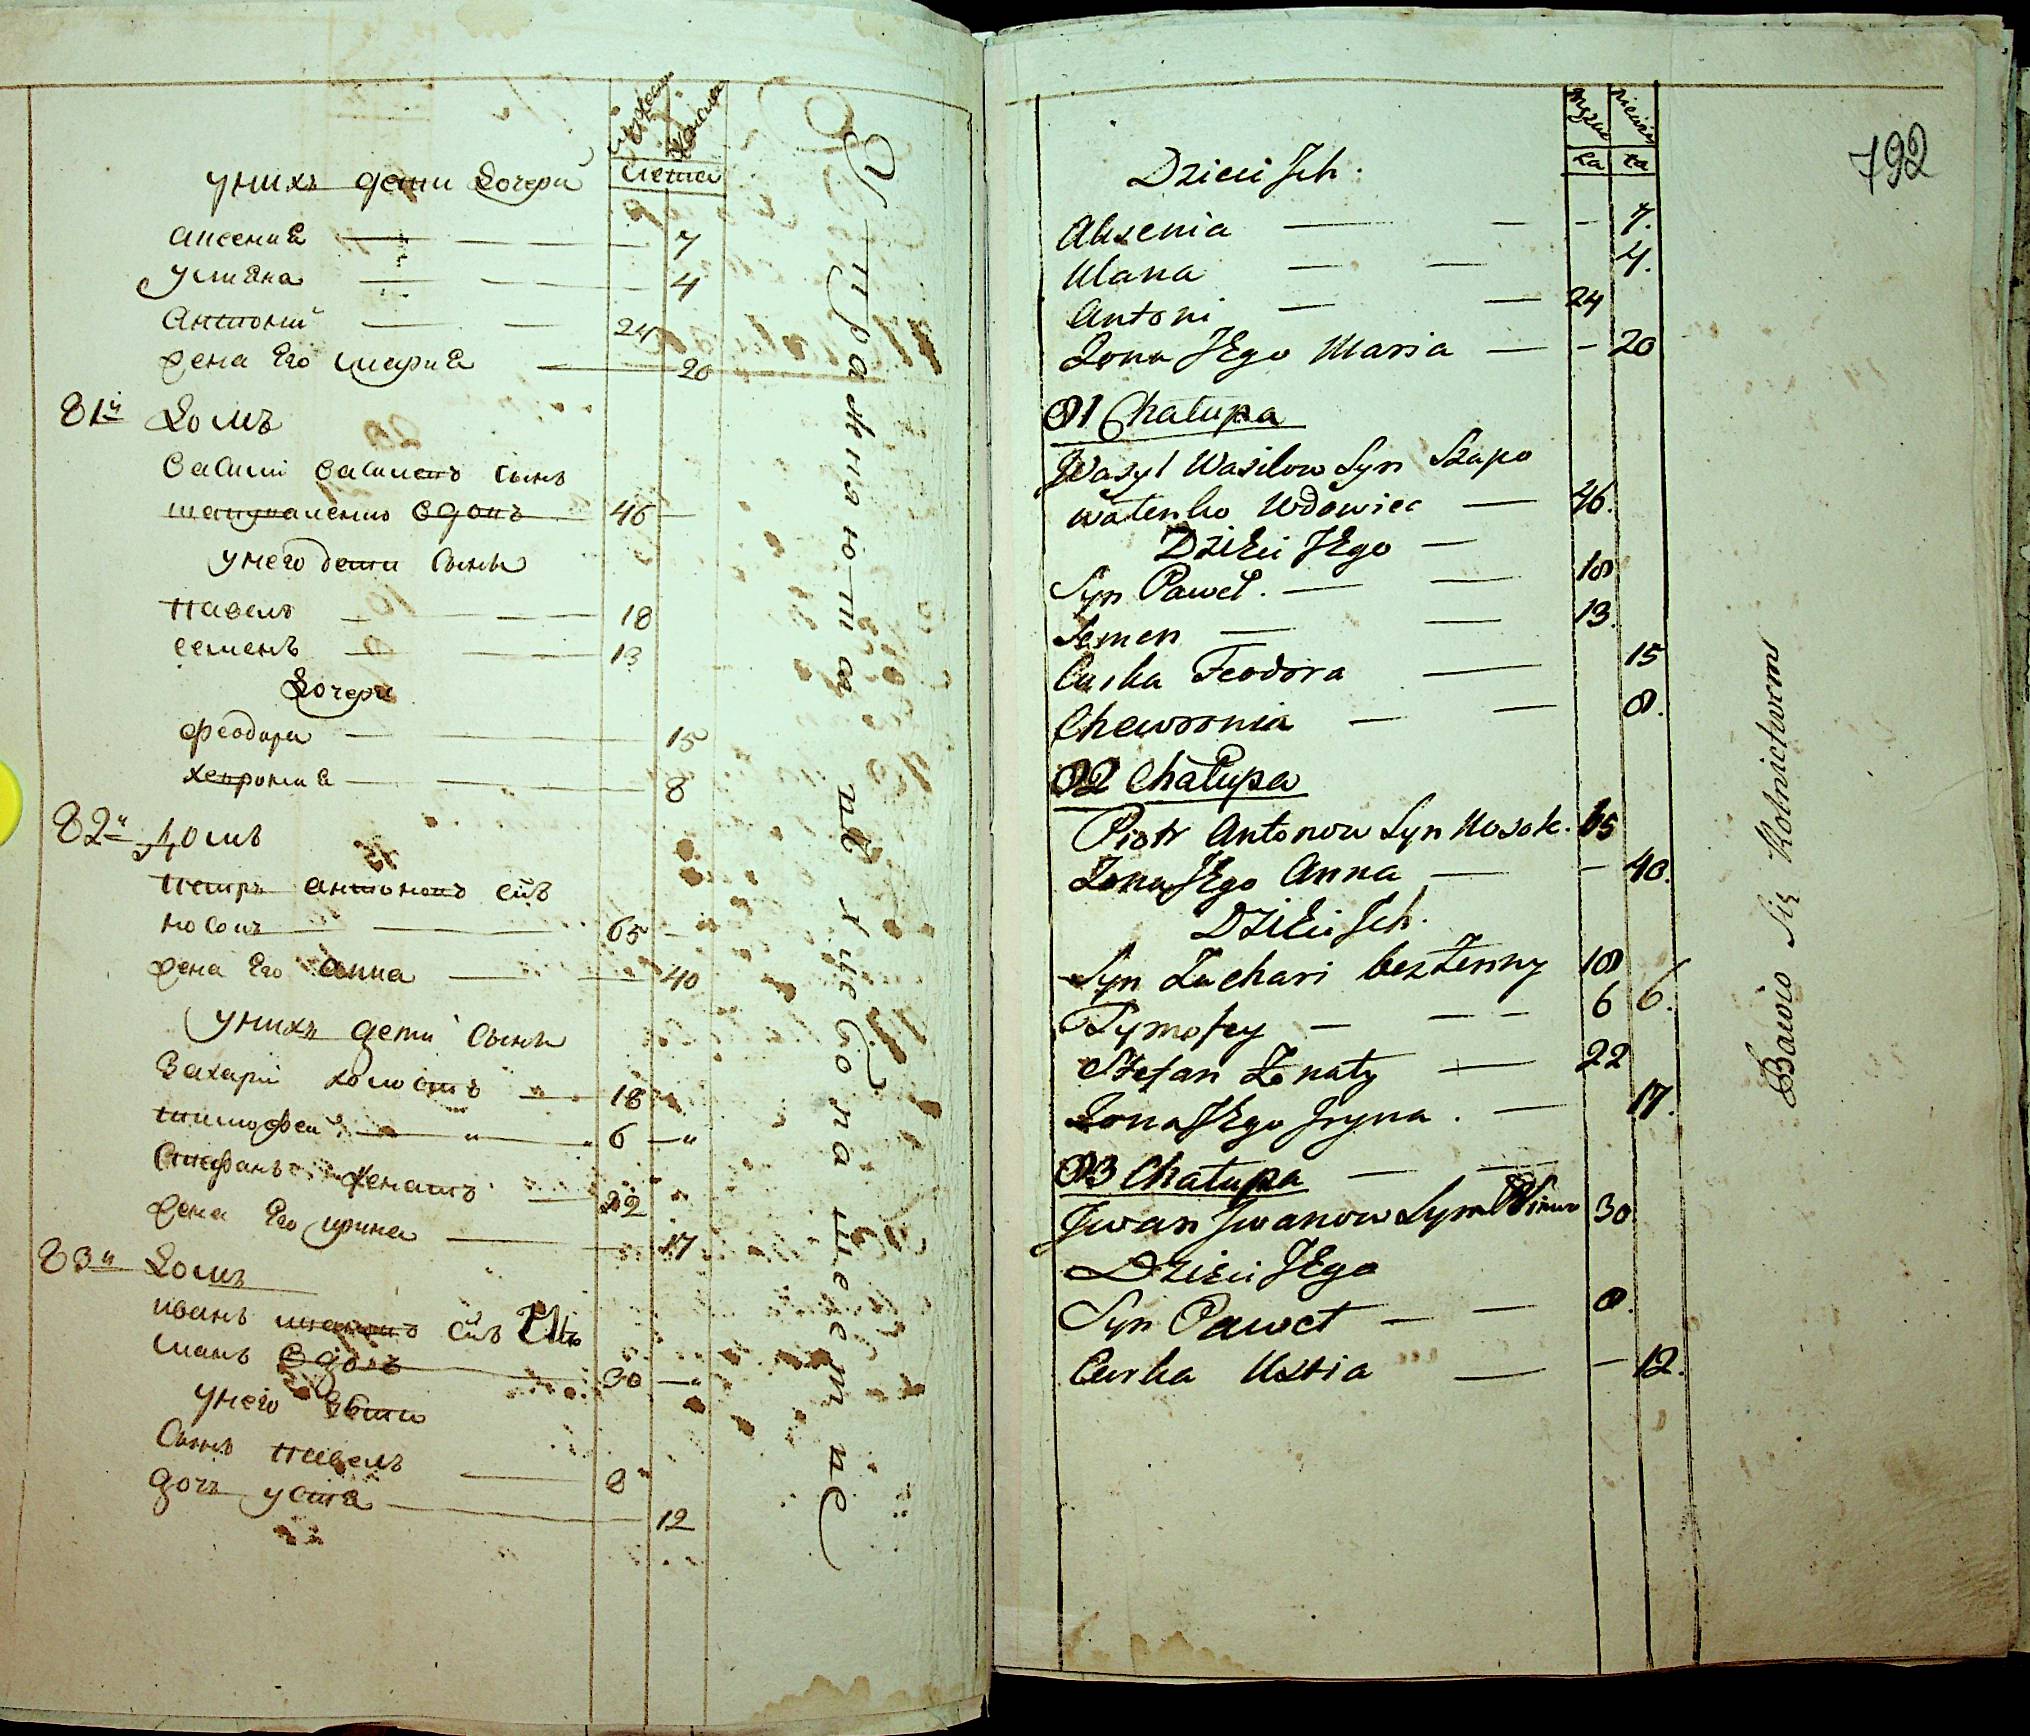 мужеска женска
Лета
у нихъ дети дочери
Аксениа — 7
Улиана — 4
Антоній — 24
жена его мариа — 20
81й домъ
Василій Васильевъ сынъ
шаповаленко вдовъ 46 —
у него дети сынъ
Павелъ — 18
Семенъ — 13
дочери
феодора — 15
хевронииа — 8
82й домъ
Петръ антоновъ сынъ
носокъ — 65 —
жена его анна — 40
у нихъ дети сынъ
Захарій холостъ — 18
тимофей — 6 —
Стефанъ женатъ — 22
жена его ирина — 17
83й домъ
иванъ ивановъ сынъ
вдовъ — 30 —
у него дети
Сынъ павелъ — 8
дочь устиа — 12
Упражняются в хлебопашестве
792
męzka niewia
La ta
Dzieci Jch.
Aksenia — — - 7.
Ulana — — 4.
Antoni — — 24
Zona JEgo Maria — - 20
81 Chalupa
Wasyl Wasilow Syn Szapo
walenko Wdowiec — 46.
Dzieci JEgo —
Syn Paweł. — — 18
Semen — — 13.
Curka Feodora — 15
Chewronia — — 8.
82 Chałupa
Piotr Antonow Syn Nosok. 65
Zona JEgo Anna — - 40.
Dzieci Jch.
Syn Zachari bezżenny 18
Tymofey — — - 6 6.
Stefan Żonaty — 22
Zona JEgo Jryna. — 17.
83 Chalupa — —
Jwan Jwanow Syn 30
Dzieci JEgo
Syn Pawel — — 8.
Curka Ustia — - 12.
Bawio Się Rolnictwem